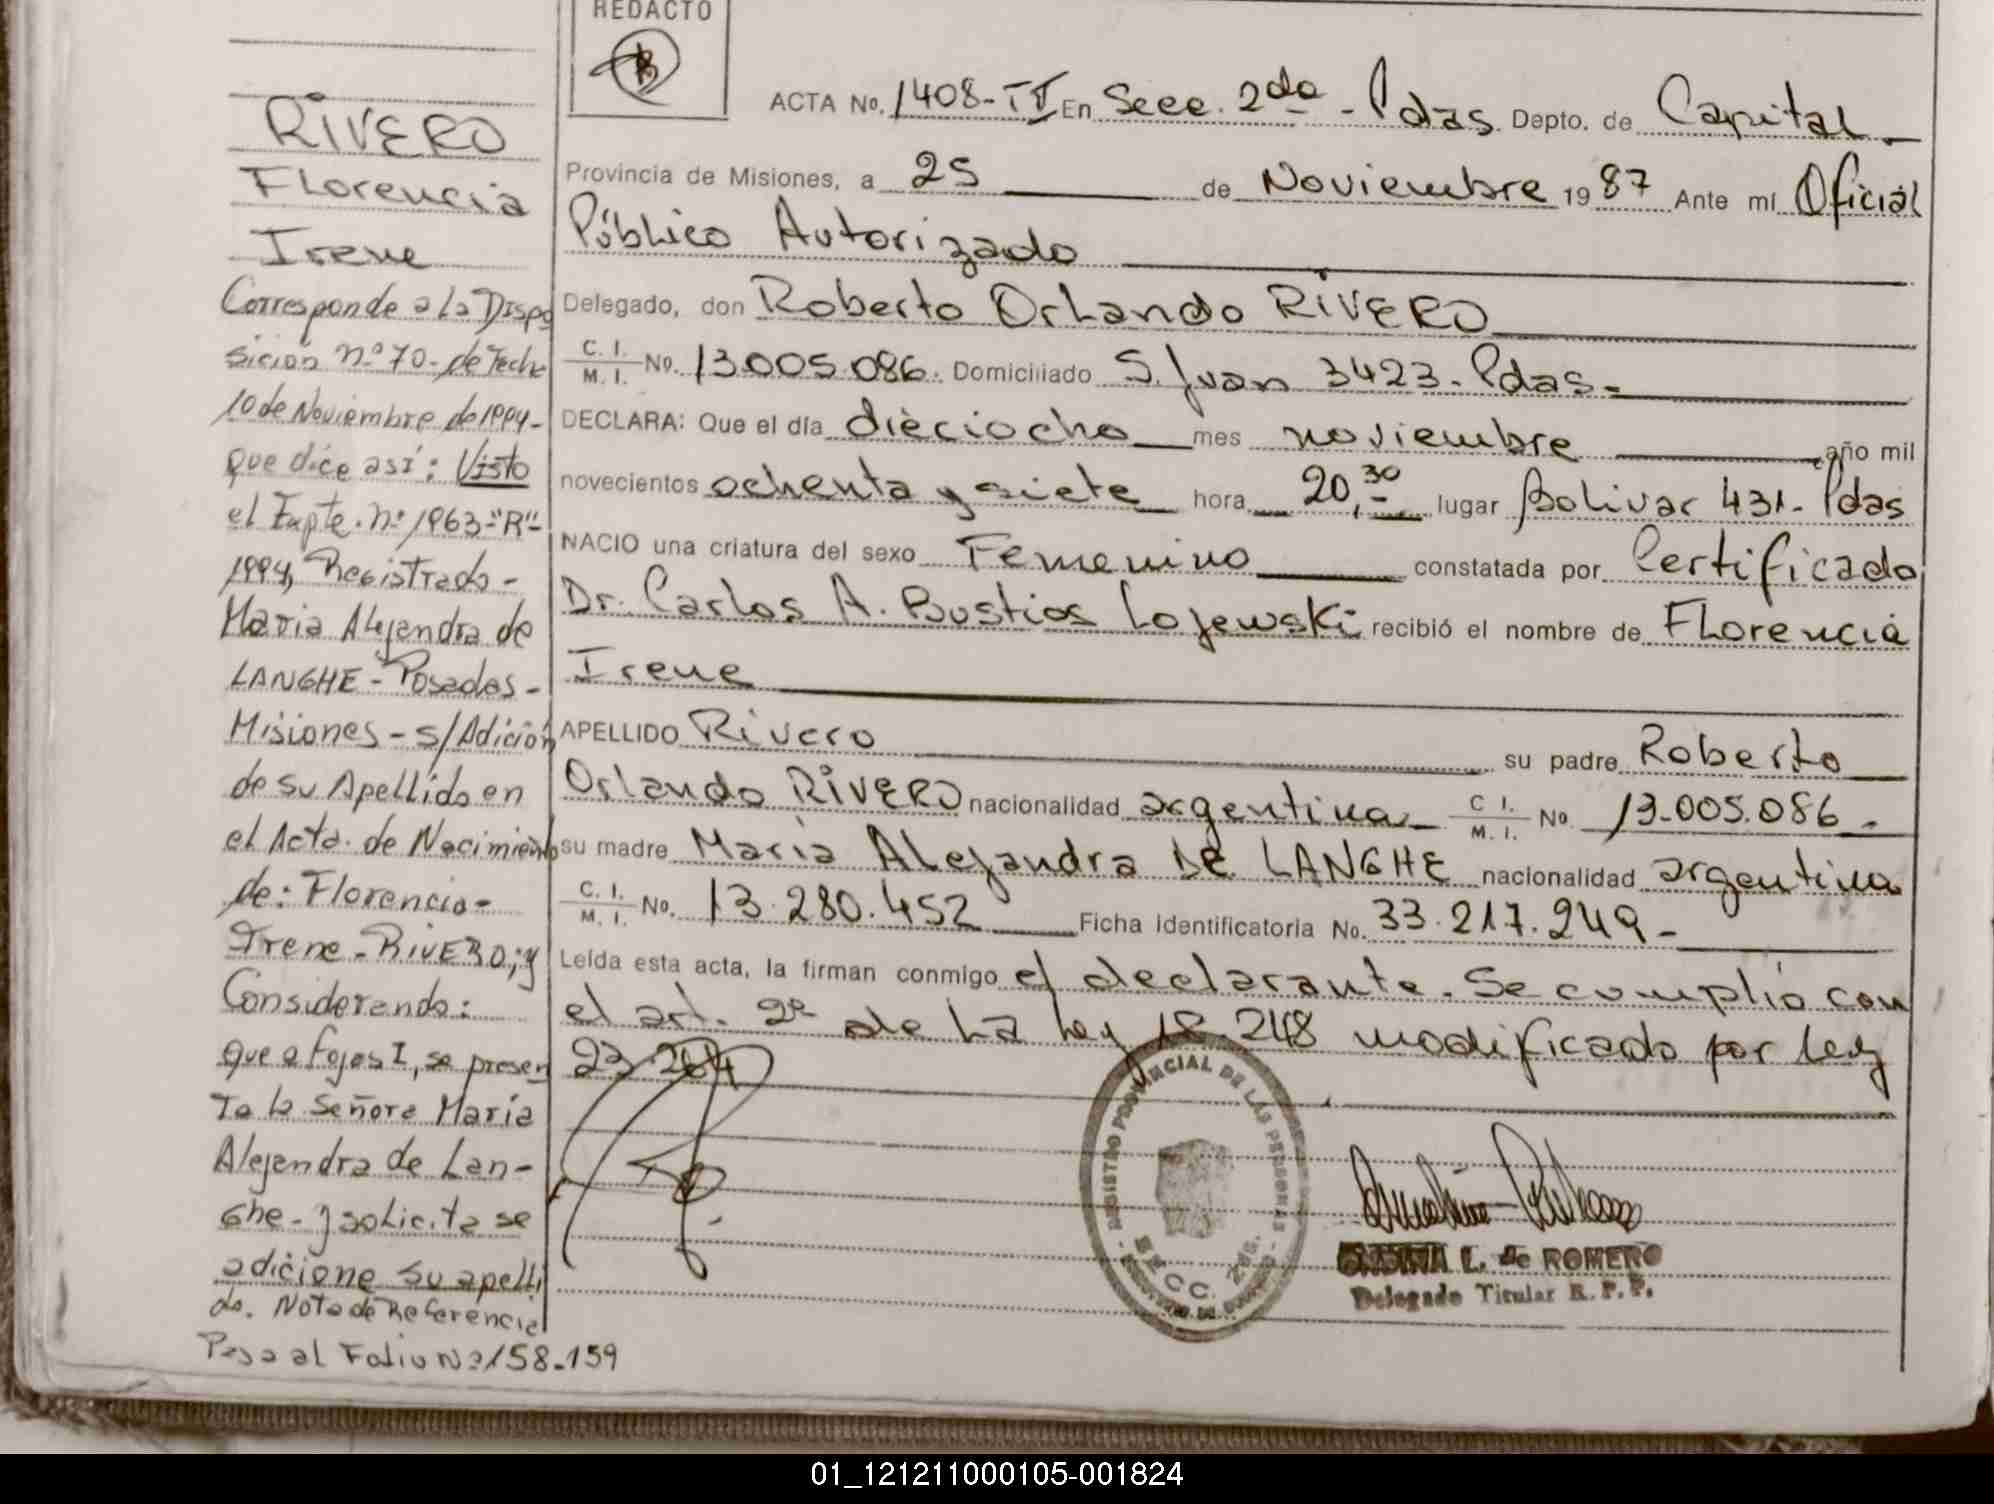 REDACTO
ACTA No. 1408-IV En Secc. 2da - Pdas. Depto. de Capital
Provincia de Misiones, a 25 de Noviembre 1987 Ante mí Oficial
Público Autorizado
Delegado, don Roberto Orlando RIVERO
C. I. / M. I. No. 13.005.086. Domiciliado S. Juan 3423. Pdas.
DECLARA: Que el día dieciocho mes noviembre año mil
novecientos ochenta y siete hora 20,30 lugar Bolivar 431. Pdas
NACIO una criatura del sexo Femenino constatada por Certificado
Dr. Carlos A. Bustios Lojewski recibió el nombre de Florencia
Irene
APELLIDO Rivero su padre Roberto
Orlando RIVERO nacionalidad argentina C I. / M. I. No. 13.005.086.
su madre María Alejandra DE LANGHE nacionalidad argentina
C. I. / M. I. No. 13.280.452 Ficha identificatoria No. 33.217.249-
Leída esta acta, la firman conmigo el declarante. Se cumplió con
el art. 2º de la ley 18.248 modificado por ley
23.264
REGISTRO PROVINCIAL DE LAS PERSONAS
L. de ROMERO
Delegado Titular R. P. P.
RIVERO
Florencia
Irene
Corresponde a la Dispo
sición nº 70- de Fecha
10 de Noviembre de 1994-
que dice así: Visto
el Expte. nº 1963-"R"-
1994, Registrado-
Maria Alejandra de
LANGHE - Posadas-
Misiones - s/Adición
de su Apellido en
el Acta de Nacimiento
de: Florencia-
Irene - RIVERO; y
Considerando:
que a fojas I, se presen
ta la Señora María
Alejandra de Lan-
ghe - y solicita se
adicione su apelli
do. Nota de Referencia
Pasa al Folio Nº 158-159
01_121211000105-001824